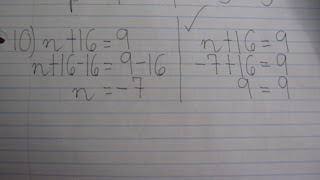 10) n+16=9
n+16-16=9-16
n=-7
✓
n+16=9
-7+16=9
9=9